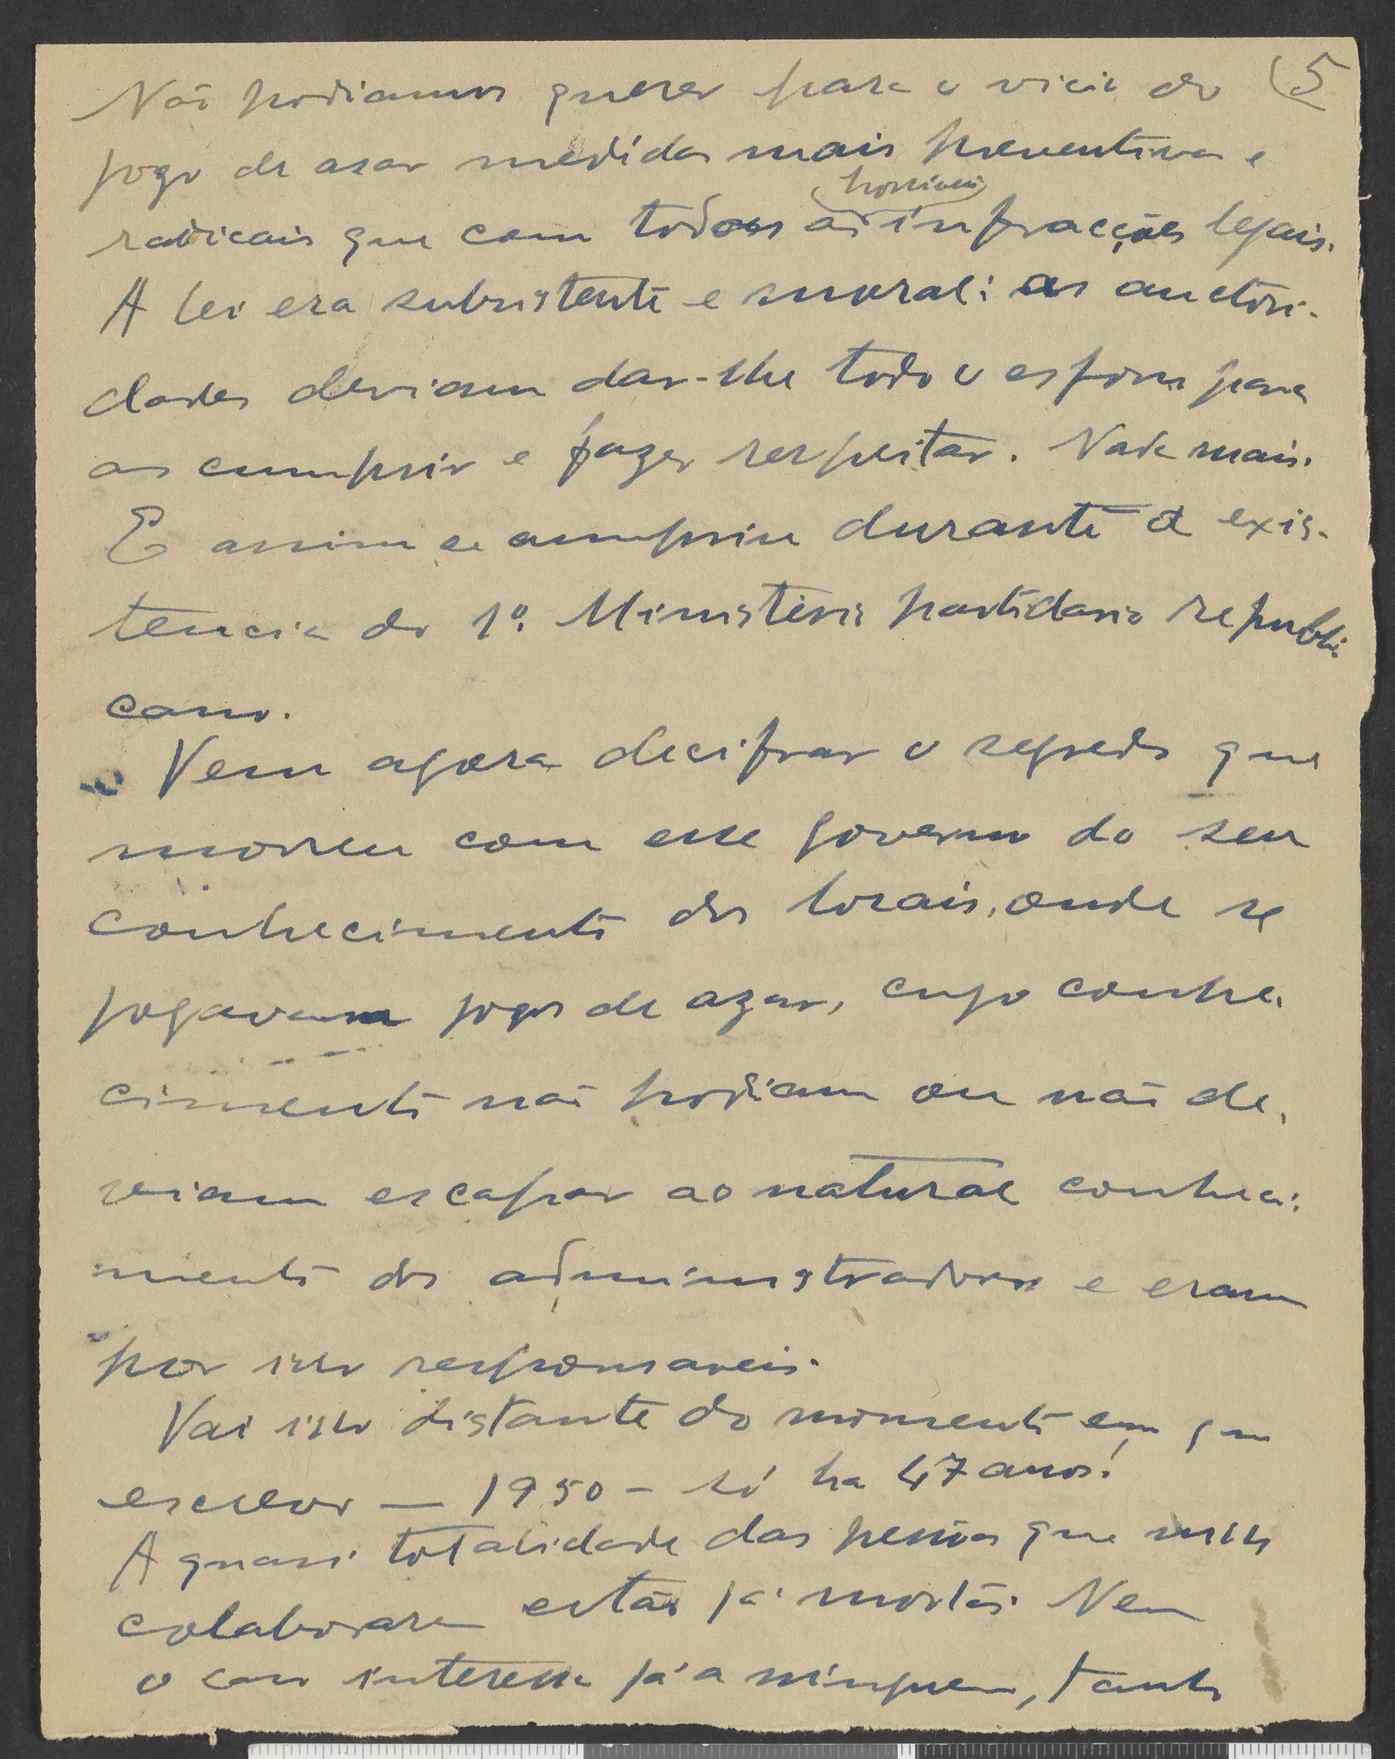 (5
Não podiamos querer para o vicio do
jogo de asar medidas mais preventivas e
possiveis
radicais que com todas as infracções legais.
A lei era subsistente e moral: as auctori-
dades deviam dar-lhe todo o esforço para
as cumprir e fazer respeitar. Nada mais.
E assim se cumpriu durante a exis-
tencia do 1º. Ministério partidario republi-
cano.
Vem agora decifrar o segredo que
morreu com esse governo do seu
conhecimento dos locais, onde se
jogavam jogos de azar, cujo conhe-
cimento não podiam ou não de-
viam escapar ao natural conheci-
mento dos administradores e eram
por isso responsaveis.
Vai isso distante do momento em que
escrevo — 1950 — só ha 47 anos!
A quasi totalidade das pessoas que nisso
colaboraram estão já mortas. Nem
o caso interessa já a ninguem, tanto